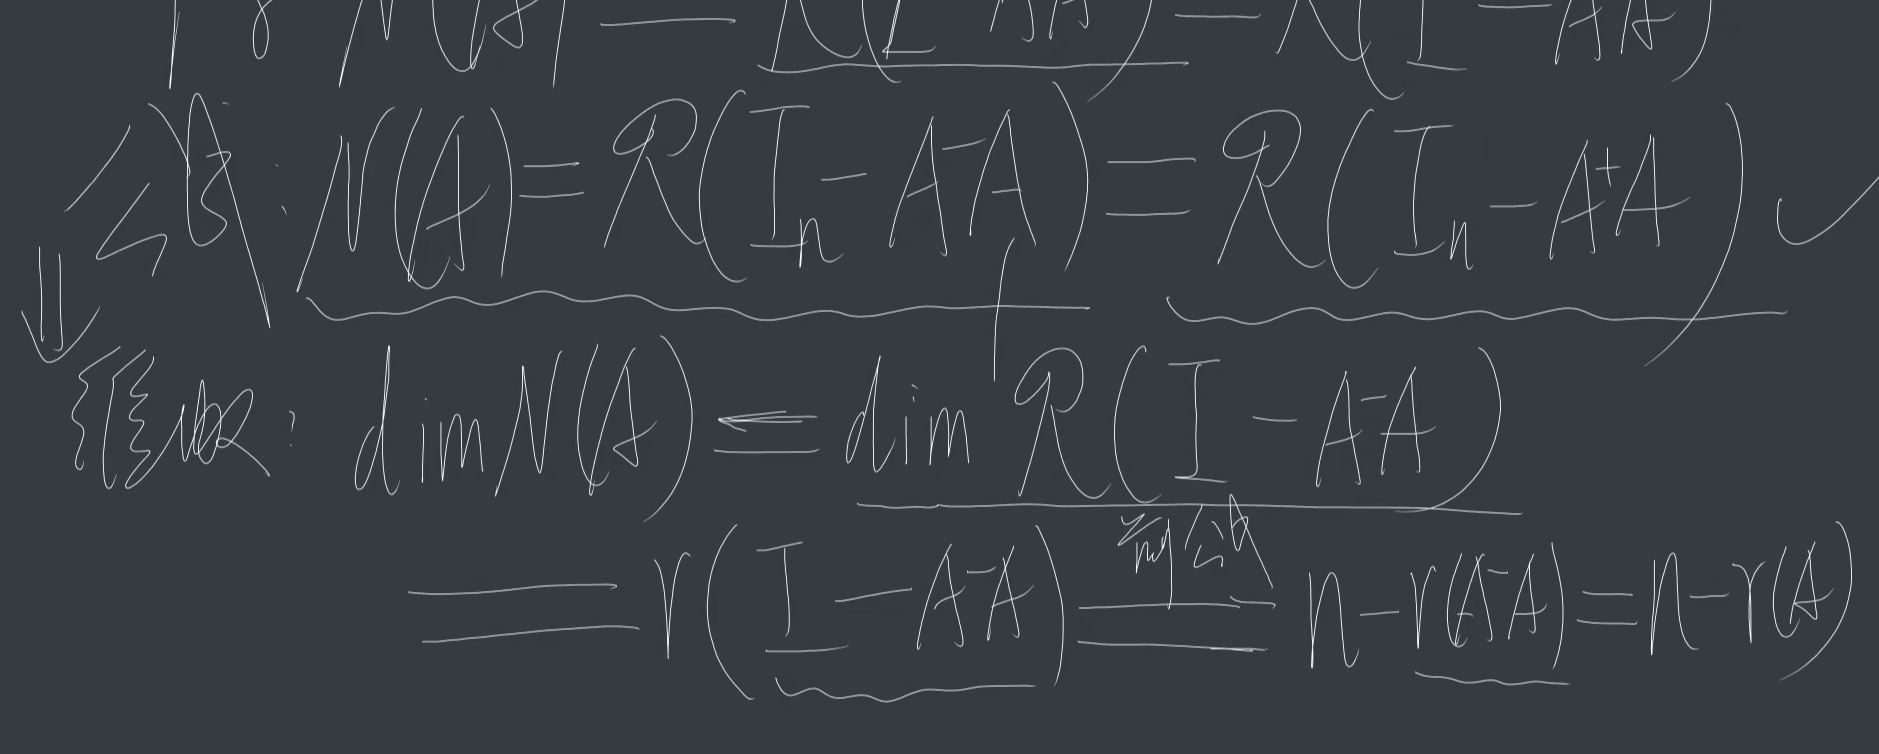 N(A) = R(I - A⁻A) = R(I - A⁺A)
公式: N(A) = R(Iₙ - A⁻A) = R(Iₙ - A⁺A) ✓
⇓
dim N(A) = dim R(I - A⁻A)
= r(I - A⁻A) = n - r(A⁻A) = n - r(A)